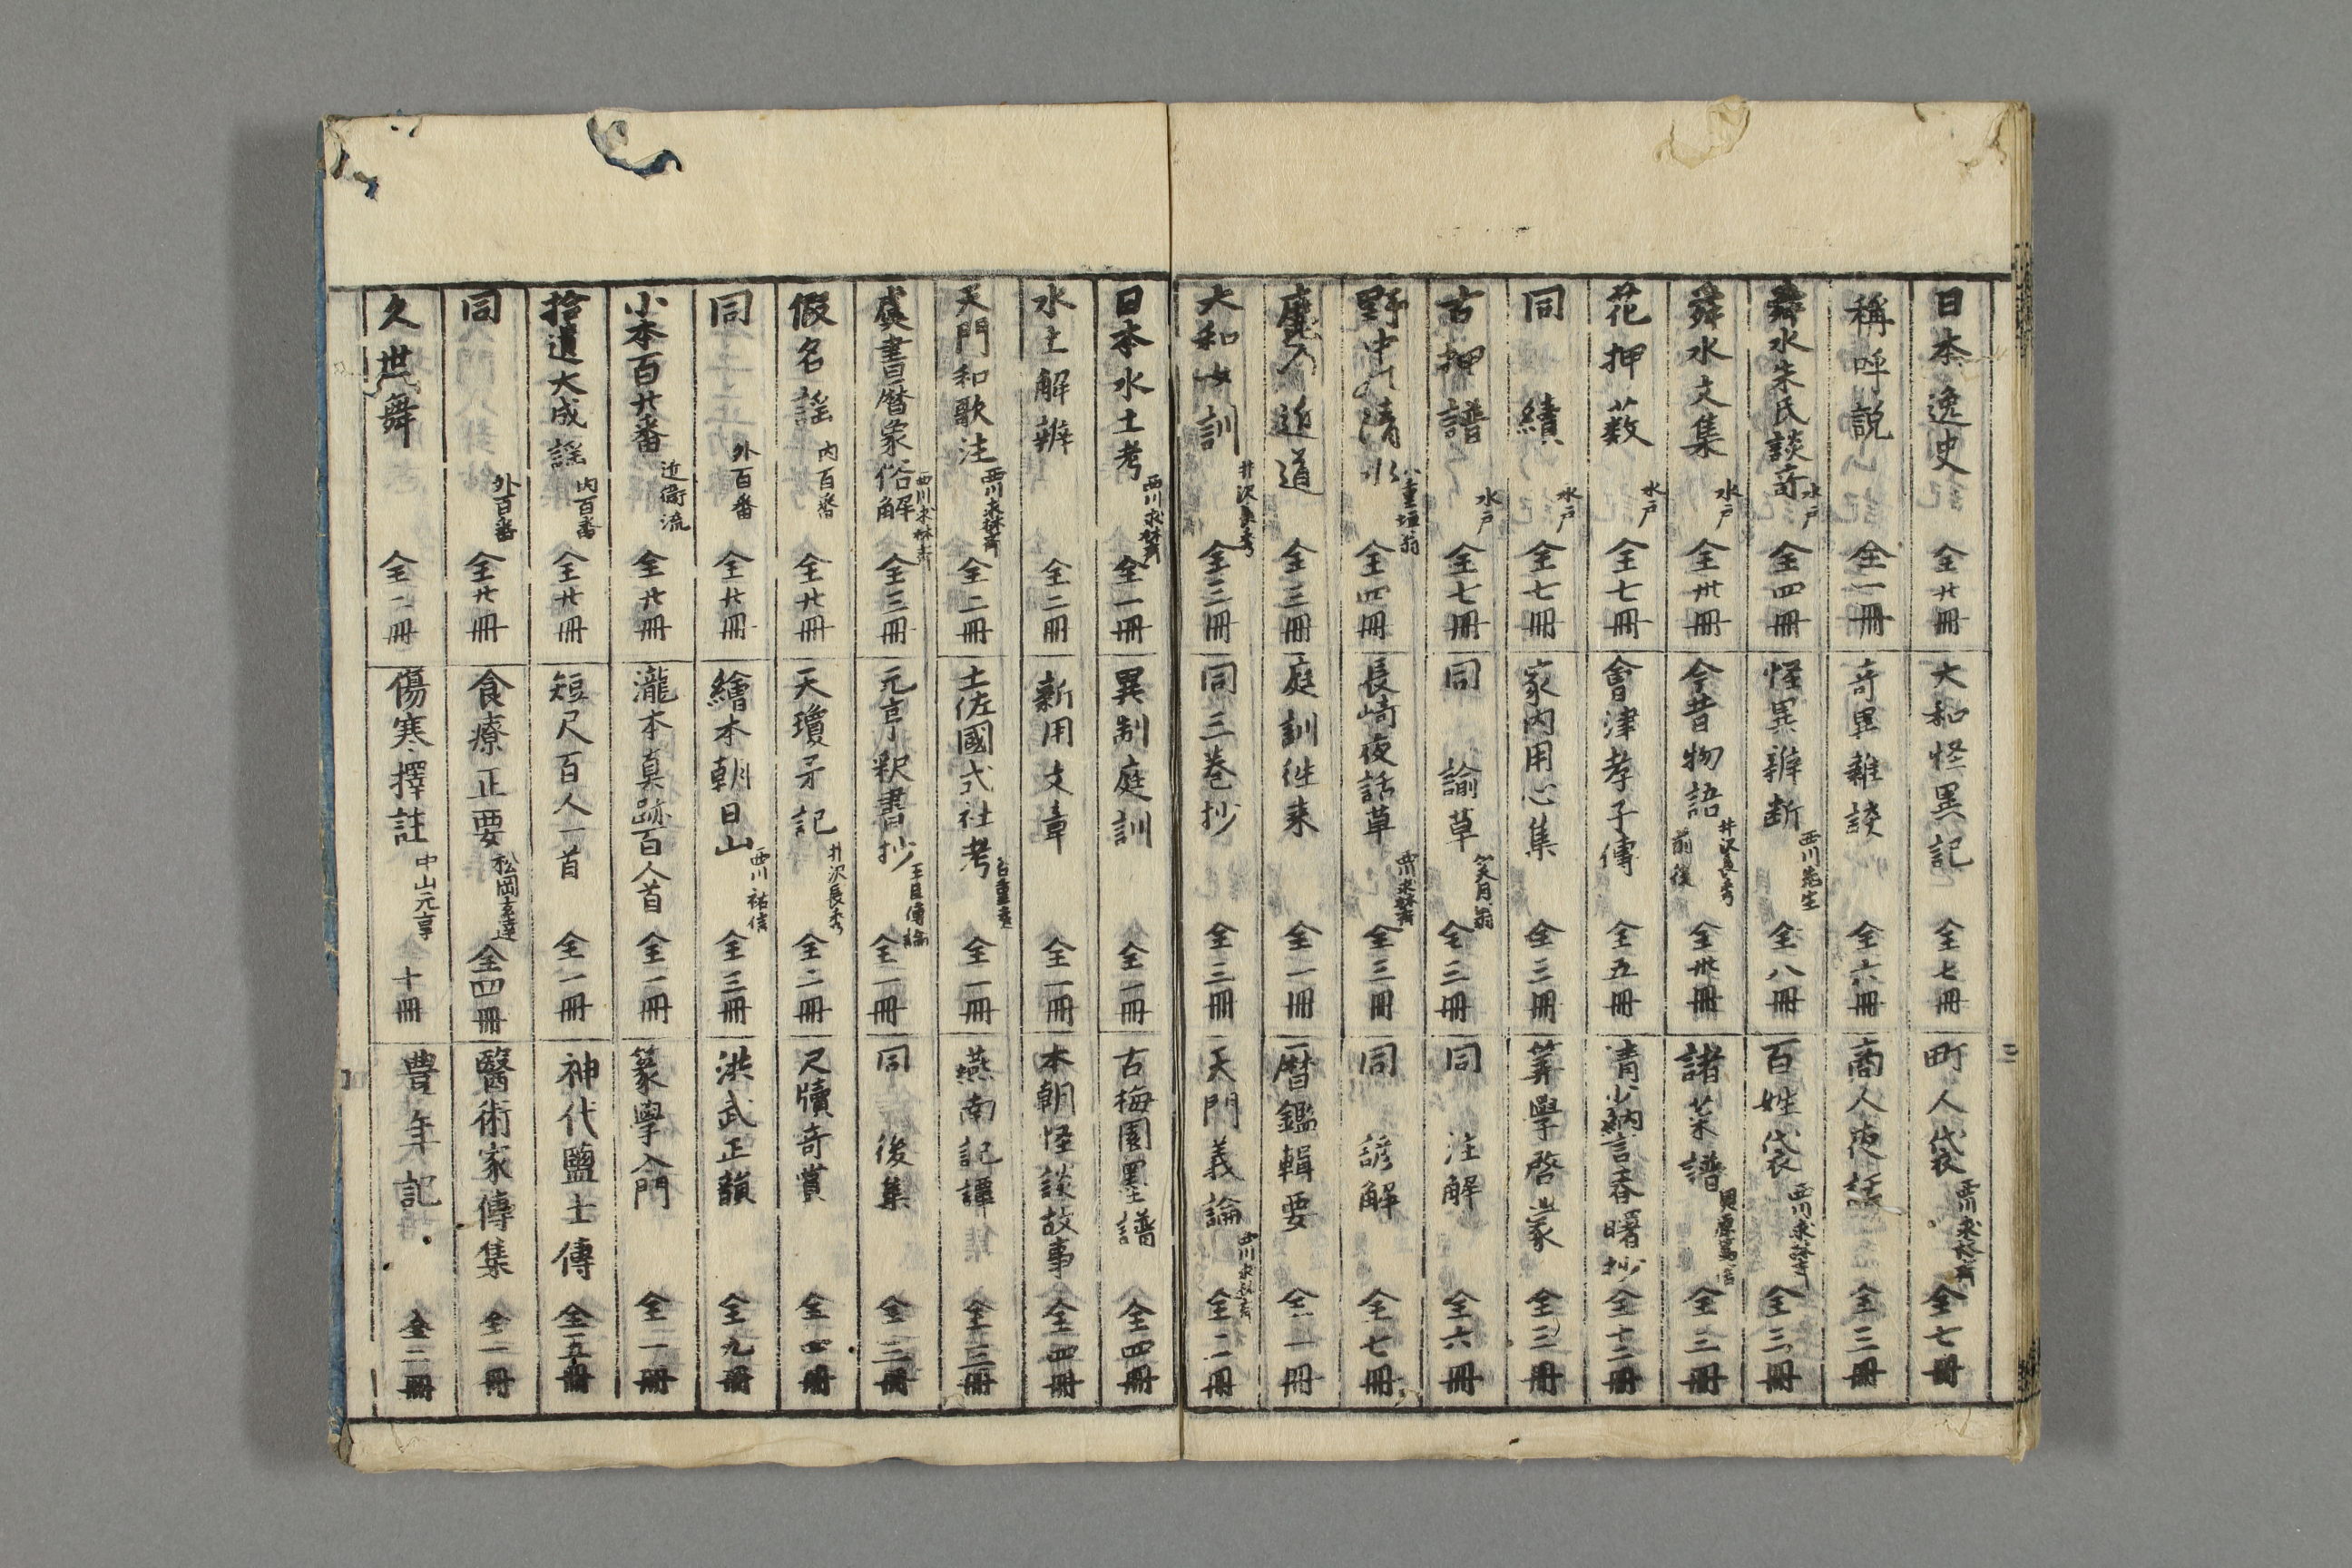 日本逸史 全廿冊
稱呼説 全一冊
舜水朱氏談奇 水戸 全四冊
舜水文集 水戸 全卅冊
花押薮 水戸 全七冊
同續 水戸 全七冊
古押譜 水戸 全七冊
野中の清水 八重垣翁 全四冊
麓乃近道 全三冊
大和女訓 井沢長秀 全三冊
大和怪異記 全七冊
奇異雜談 全六冊
怪異辨断 西川先生 全八冊
今昔物語 井沢長秀 前後 全卅冊
會津孝子傳 全五冊
家内用心集 全三冊
同諭草 笑月翁 全三冊
長崎夜話草 西川求林斎 全三冊
庭訓徃来 全一冊
同三巻抄 全三冊
町人袋 西川求林斎 全七冊
商人夜話 全三冊
百姓袋 西川求林斎 全三冊
諸菜譜 貝原篤信 全三冊
清少納言春曙抄 全十二冊
筭學啓蒙 全三冊
同注解 全六冊
同諺解 全七冊
暦鑑輯要 全一冊
天門義論 西川求林斎 全二冊
日本水土考 西川求林斎 全一冊
水土解辨 全二冊
天門和歌注 西川求林斎 全二冊
虞書暦象俗解 西川求林斎 全三冊
假名謡 内百番 全廿冊
同 外百番 全廿冊
小本百廿番 近衛流 全廿冊
拾遺大成謡 内百番 全廿冊
同 外百番 全廿冊
久世舞 全二冊
異制庭訓 全一冊
新用文章 全一冊
土佐國式社考 谷重遠 全一冊
元亨釈書抄 全一冊
天瓊矛記 井沢長秀 全二冊
繪本朝日山 西川祐信 全三冊
瀧本真跡百人首 全一冊
短尺百人一首 全一冊
食療正要 松岡玄達 全四冊
傷寒擇註 中山元亨 十冊
古梅園墨譜 全四冊
本朝怪談故事 全四冊
燕南記譚 全三冊
同後集 全三冊
尺牘奇賞 全四冊
洪武正韻 全九冊
篆學入門 全一冊
神代鹽土傳 全五冊
醫術家傳集 全一冊
豊年記 全二冊